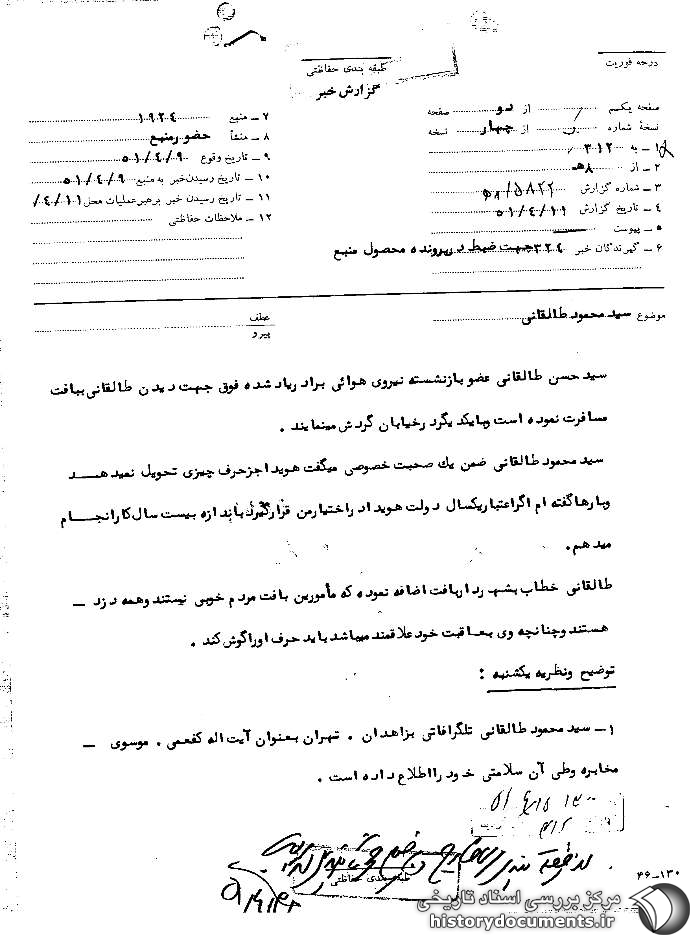 درجه فوریت
طبقه بندی حفاظتی
گزارش خبر
صفحه یکم از دو صفحه
نسخهٔ شماره از چهار نسخه
۱ـ به ۳۱۲
۲ـ از ۸هـ
۳ـ شماره گزارش ۵۸۲۲/ﻫ۸
۴ـ تاریخ گزارش ۵۱/۴/۱۹
۵ـ پیوست
۶ـ گیرندگان خبر ۳۲۴ جهت ضبط در پرونده محصول منبع
۷ـ منبع ۱۹۲۴
۸ـ منشأ حضور منبع
۹ـ تاریخ وقوع ۵۱/۴/۹
۱۰ـ تاریخ رسیدن خبر به منبع ۵۱/۴/۹
۱۱ـ تاریخ رسیدن خبر برهبر عملیات محل ۴/۱۱/
۱۲ـ ملاحظات حفاظتی
موضوع سید محمود طالقانی
عطف
پیرو
سید حسن طالقانی عضو بازنشسته نیروی هوائی برادر یاد شده فوق جهت دیدن طالقانی ببافت
مسافرت نموده است وبایکدیگر در خیابان گردش مینمایند .
سید محمود طالقانی ضمن یك صحبت خصوصی میگفت هویدا جز حرف چیزی تحویل نمیدهـــد
وبارها گفته ام اگر اعتبار یکسال دولت هویدا در اختیار من قرار گیرد باندازه بیست سال کار انجـــام
میدهم.
طالقانی خطاب بشهردار بافت اضافه نموده که مأمورین بافت مردم خوبی نیستند وهمه دزد ـ
هستند وچنانچه وی بعاقبت خود علاقمند میباشد باید حرف او را گوش کند .
توضیح ونظریه یکشنبه :
۱ـ سید محمود طالقانی تلگرافاتی بزاهدان . تهران بعنوان آیت اله کفعمی . موسوی ـ
مخابره وطی آن سلامتی خود را اطلاع داده است .
طبقه بندی حفاظتی
۴۶ـ۱۳۰
مرکز بررسی اسناد تاریخی
historydocuments.ir